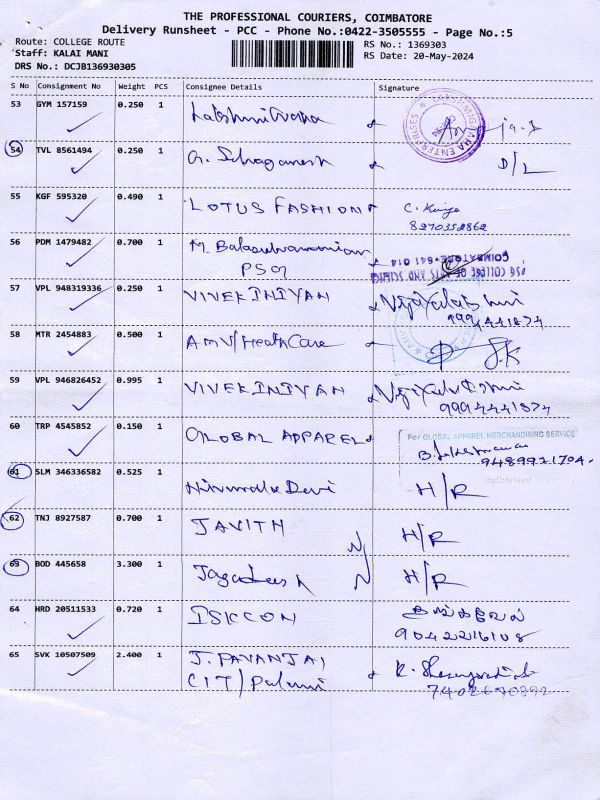 THE PROFESSIONAL COURIERS, COIMBATORE
Delivery Runsheet - PCC - Phone No.:0422-3505555 - Page No.:5
Route: COLLEGE ROUTE
RS No.: 1369303
Staff: KALAI MANI
RS Date: 20-May-2024
DRS No.: DCJB136930305
S No Consignment No Weight PCS Consignee Details Signature
53 GYM 157159 0.250 1
54 TVL 8561494 0.250 1 D/L
55 KGF 595320 0.490 1 LOTUS FASHION
8270352862
56 PDM 1479482 0.700 1 M. Balasubramanian
PSG
PSG COLLEGE OF ARTS AND SCIENCE
COIMBATORE-641 014
57 VPL 948319336 0.250 1 VIVEKINIYAN Vijayalakshmi
9994441874
58 MTR 2454883 0.500 1 AMV/HealthCare
59 VPL 946826452 0.995 1 VIVEKINIYAN Vijayalakshmi
9994441874
60 TRP 4545852 0.150 1 GLOBAL APPAREL
For GLOBAL APPAREL MERCHANDISING SERVICE
9489921704
Authorised Signatory
61 SLM 346336582 0.525 1 Nirmala Devi H/R
62 TNJ 8927587 0.700 1 JAVITH N H/R
63 BOD 445658 3.300 1 Jagadeesh N H/R
64 HRD 20511533 0.720 1 ISKCON
9042216108
65 SVK 10507509 2.400 1 J. PAVANJAI
CIT/
7402690892